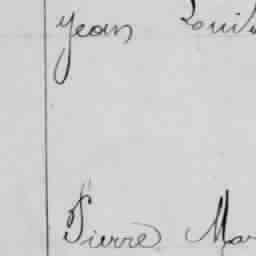 Jean Loui
Pierre Mar